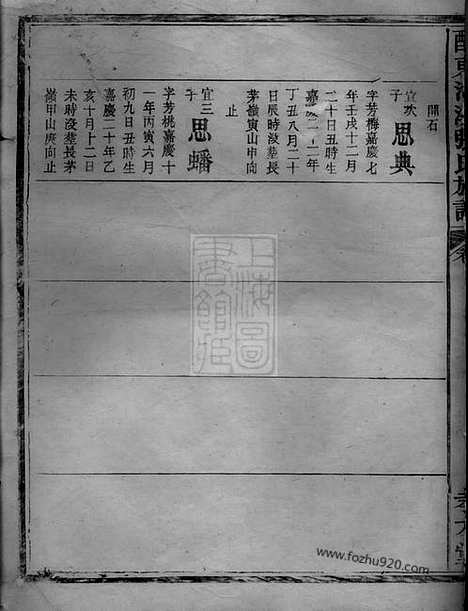 開石
宜次子 思典
字芳梅嘉慶七
年壬戌十二月
二十日丑時生
嘉慶二十二年
丁丑八月二十
日辰時沒塟長
茅嶺寅山申向
止
宜三子 思蟠
字芳桃嘉慶十
一年丙寅六月
初九日丑時生
嘉慶二十年乙
亥十月十二日
未時沒塟長茅
嶺甲山庚向止
上海圖書館藏
www.fozhu920.com